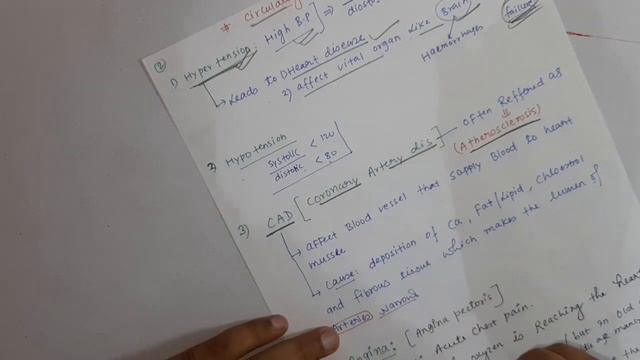 * Circulat
②
1) Hypertension: High B.P ⇒ diosto
↳ Leads to 1) Heart disease
2) affect vital organ like Brain failure
Haemorrhages
2) Hypotension
Systolic < 120
distolic < 80
3) CAD [Coronary Artery dis] — often Reffered as
⇓
(Atherosclerosis)
→ affect Blood vessel that supply Blood to heart
mussle
→ Cause: deposition of Ca, Fat/Lipid, Chloestrol
and fibrous tissue which makes the lumen of
Arteries narrow
Angina: [Angina pectoris]
Acute chest pain.
oxygen is Reaching the heart
(but in old